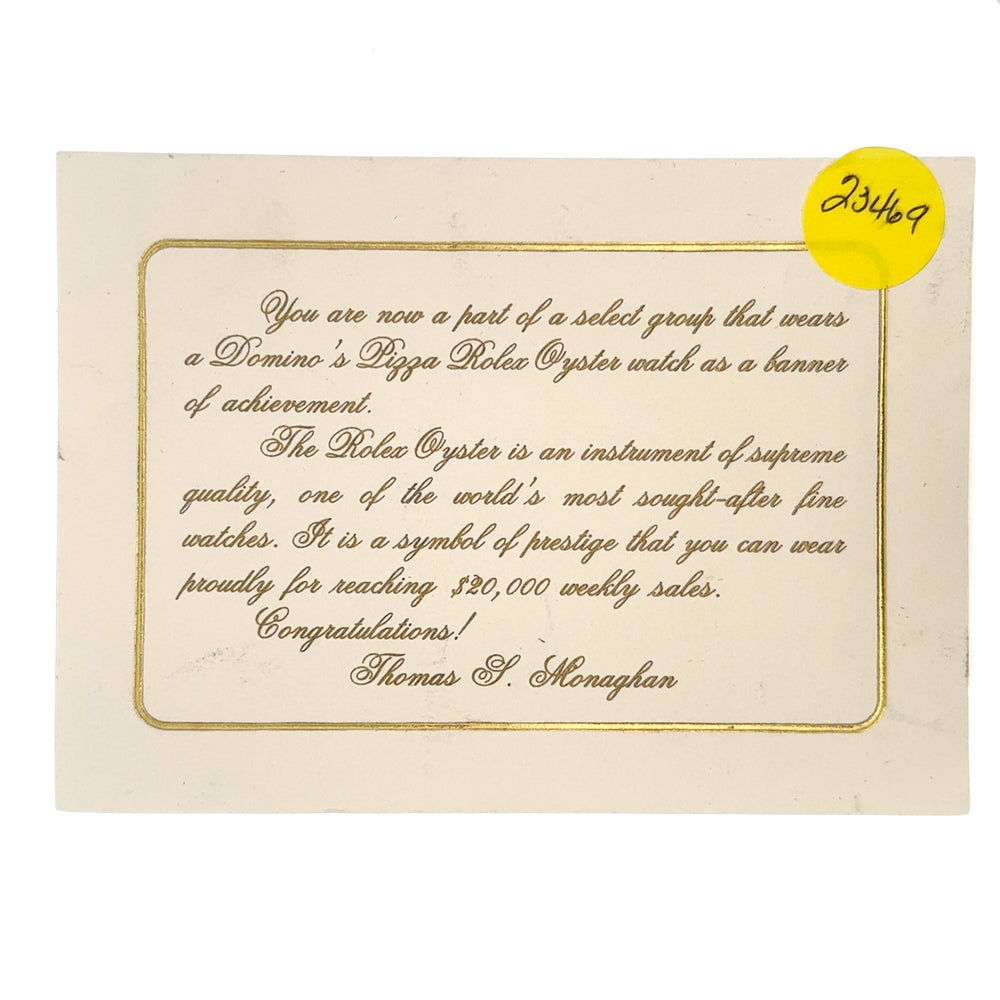 23469
You are now a part of a select group that wears
a Domino's Pizza Rolex Oyster watch as a banner
of achievement.
The Rolex Oyster is an instrument of supreme
quality, one of the world's most sought-after fine
watches. It is a symbol of prestige that you can wear
proudly for reaching $20,000 weekly sales.
Congratulations!
Thomas S. Monaghan